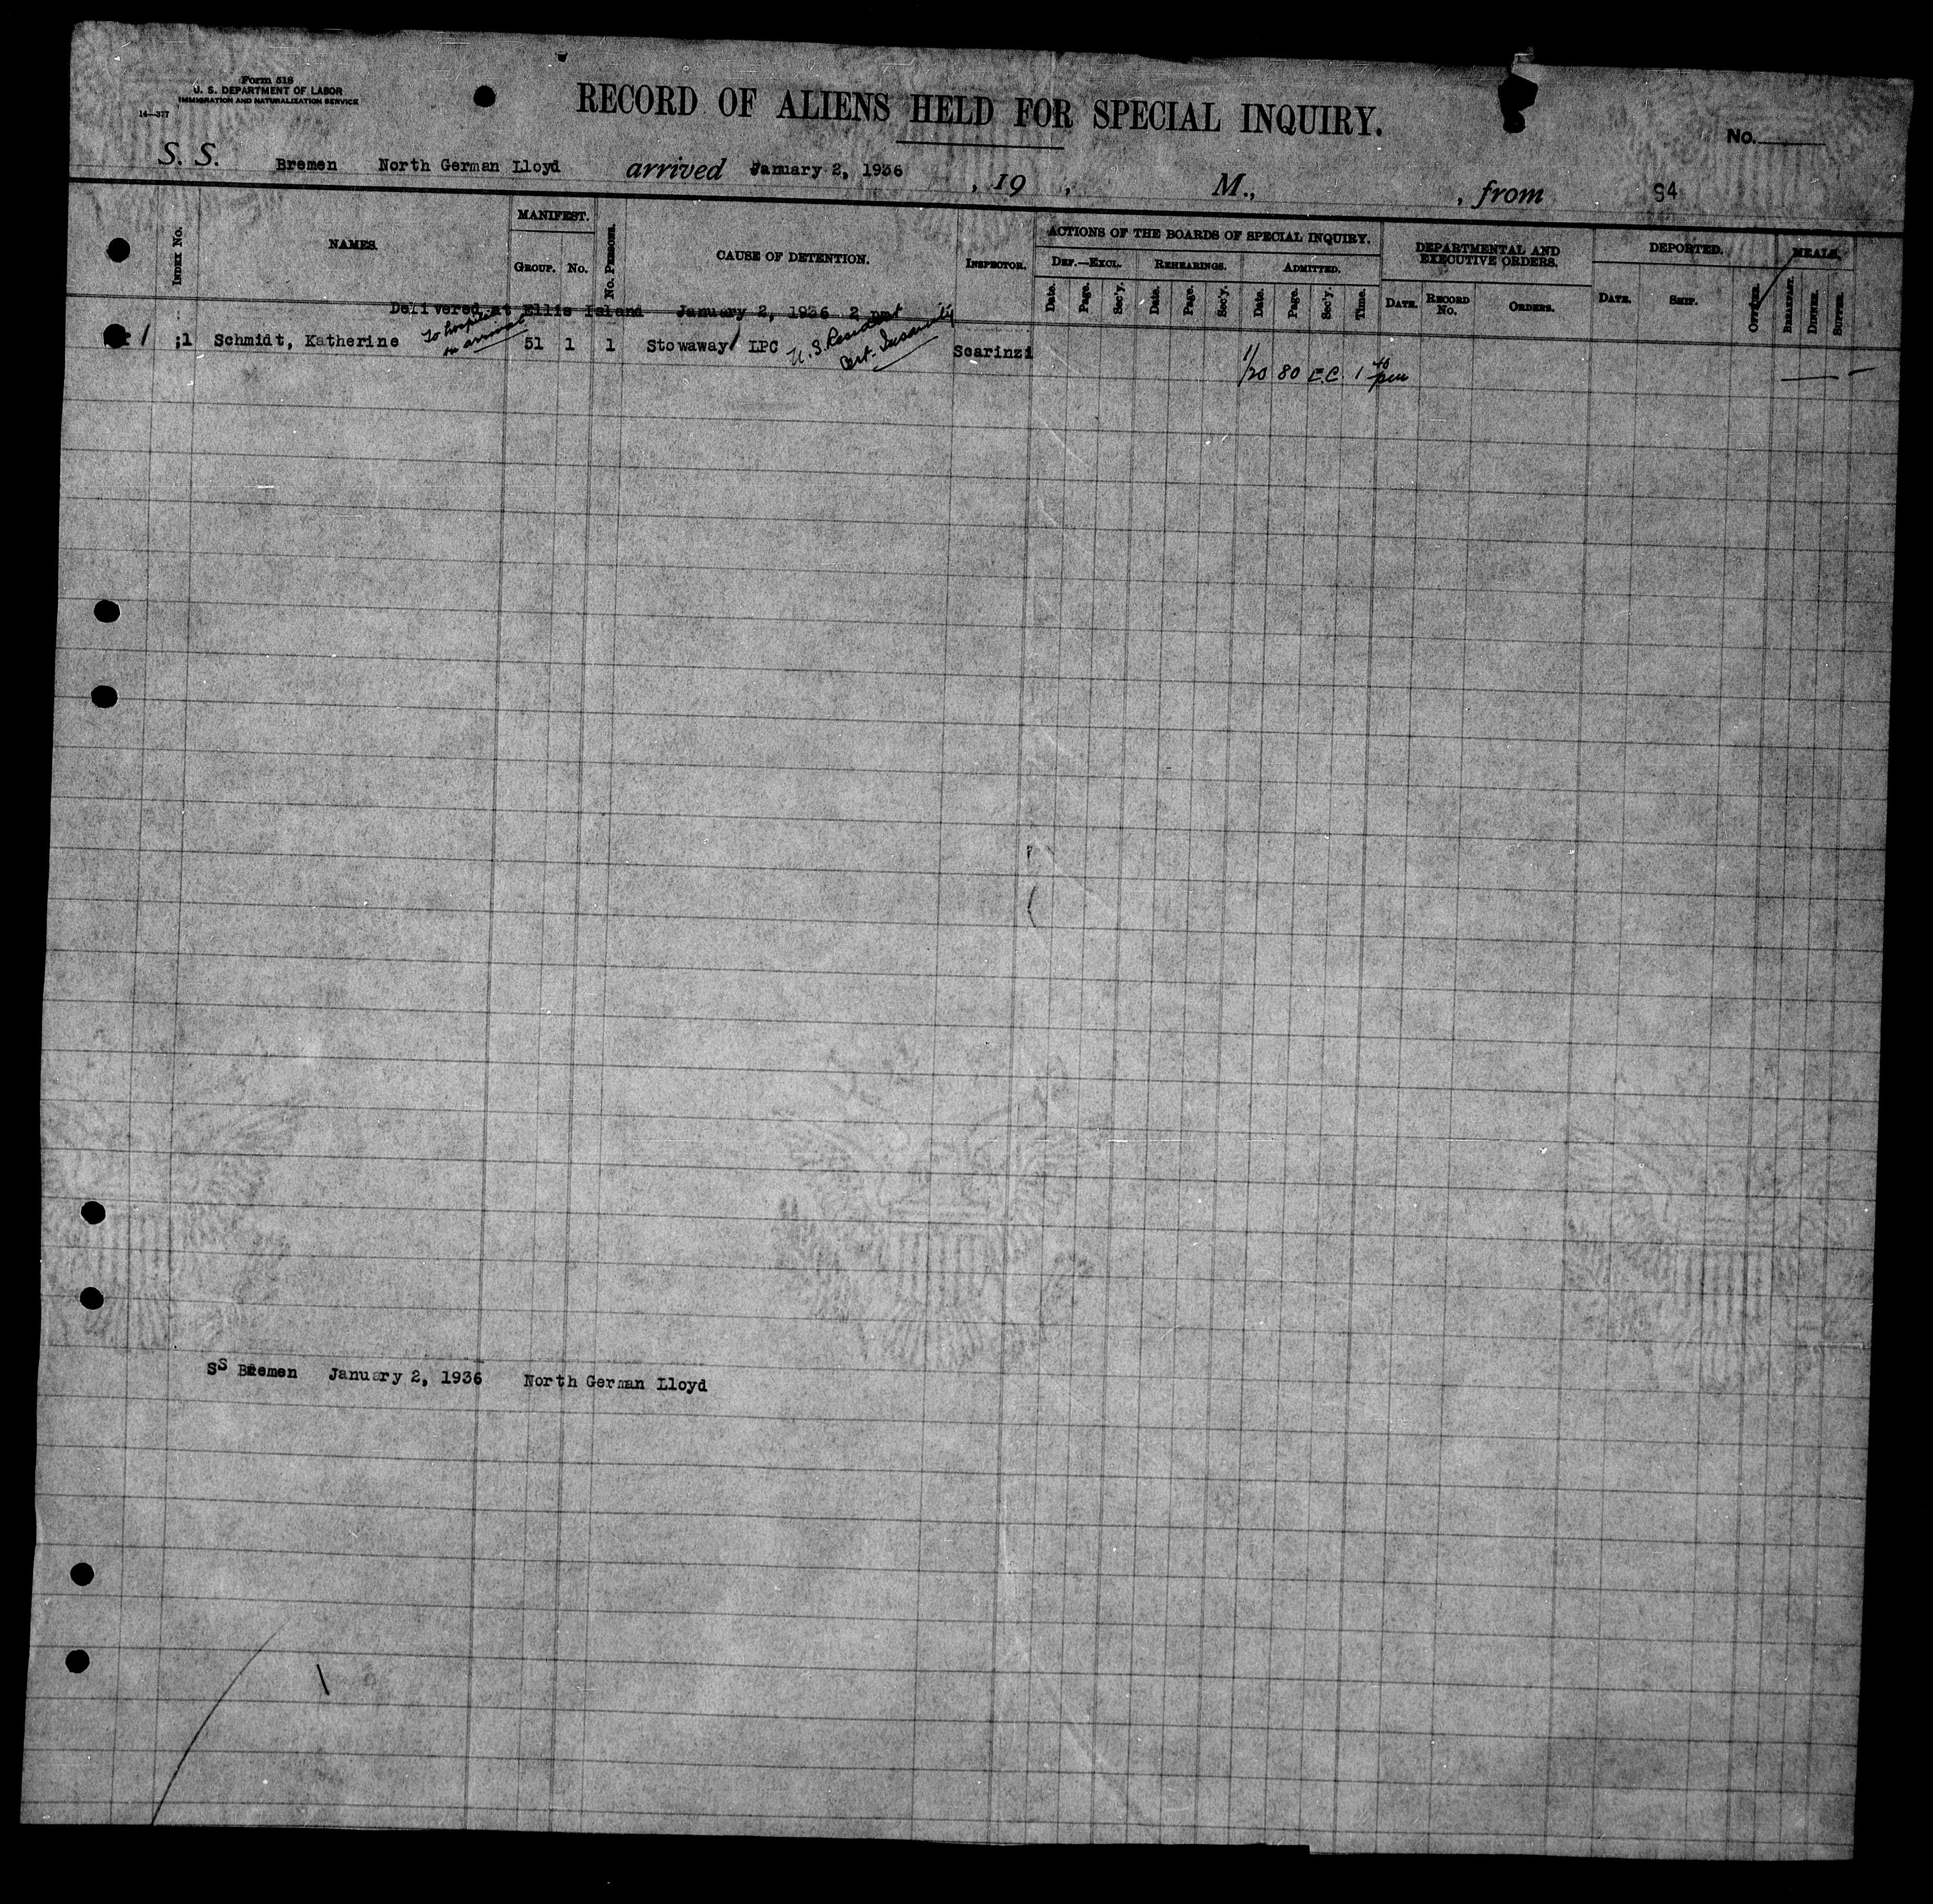 Form 518
U. S. DEPARTMENT OF LABOR
IMMIGRATION AND NATURALIZATION SERVICE
14—377
RECORD OF ALIENS HELD FOR SPECIAL INQUIRY.
No.
S. S. Bremen North German Lloyd arrived January 2, 1936 , 19 , M., , from 94
INDEX No.
NAMES.
MANIFEST.
GROUP. No.
No. PERSONS.
CAUSE OF DETENTION.
INSPECTOR.
ACTIONS OF THE BOARDS OF SPECIAL INQUIRY.
DEF.—EXCL. REHEARINGS. ADMITTED.
Date. Page. Sec'y. Date. Page. Sec'y. Date. Page. Sec'y. Time.
DEPARTMENTAL AND
EXECUTIVE ORDERS.
DATE. RECORD No. ORDERS.
DEPORTED.
DATE. SHIP. OFFICER.
MEALS.
BREAKFAST. DINNER. SUPPER.
Delivered at Ellis Island January 2, 1936 2 pm
1 Schmidt, Katherine To hospital on arrival 51 1 1 Stowaway LPC U.S. Resident Cert. Insanity Scarinzi 1/20 80 E.C. 1 40 pm
SS Bremen January 2, 1936 North German Lloyd